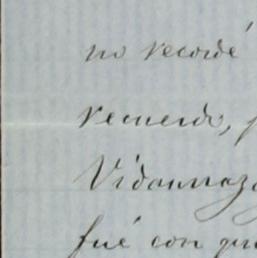 no recordé
recuerdo, p
Vidaurrazá
fué con que